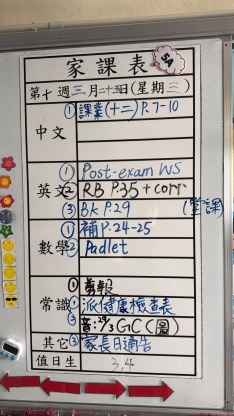 家課表
5A
第十週三月二十三日(星期三)
中文 ① 課業(十二)P.7-10
① Post-exam WS
英文 ② RB P.35 + corr
③ BK P.29 (堂課)
① 補P.24-25
數學 ② Padlet
① 剪報
常識 ① 派健康檢查表
音:29/3 GC(圖)
其它 ③ 家長日通告
值日生 3,4